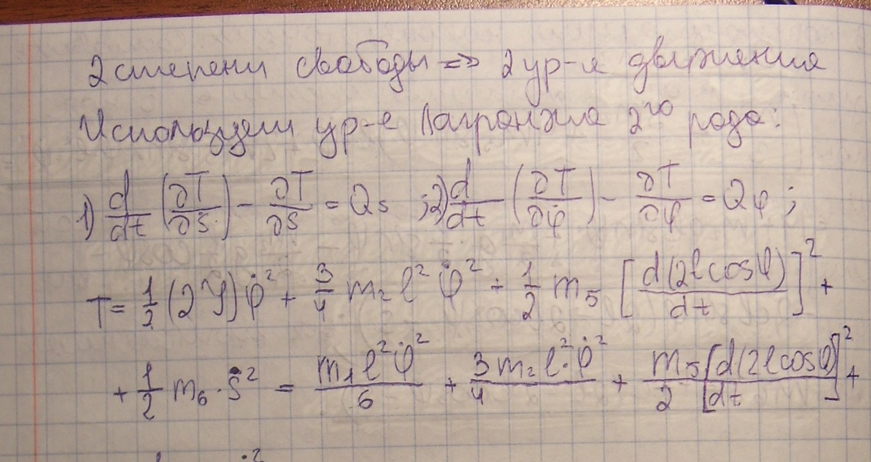 2 степени свободы => 2 ур-я движения
Используем ур-е Лагранжа 2го рода:
1) d/dt (∂T/∂ṡ) - ∂T/∂s = Qs ; 2) d/dt (∂T/∂φ̇) - ∂T/∂φ = Qφ ;
T = 1/2 (2J) φ̇² + 3/4 m₂ l² φ̇² + 1/2 m₅ [d(2l cosφ)/dt]² +
+ 1/2 m₆ · ṡ² = m₁l²φ̇²/6 + 3m₂l²·φ̇²/4 + m₅/2 [d(2l cosφ)/dt]² +